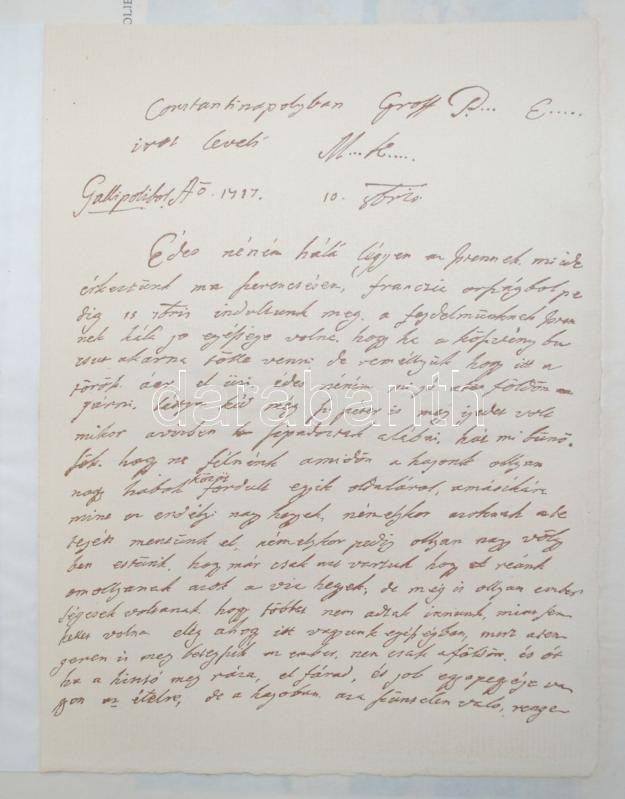 Constantinapolyban Groff P... E.....
irot leveli M... K....
Gallipolibol, Ao. 1717. 10. 8bris
Édes néném hálá légyen az Istennek, mi ide
érkeztünk ma szerencsésen, francia országbol pe
dig 15 7bris indultunk meg. a fejdelmünknek Iste
nek hálá jo egésége volna, hogy ha a köszvény bu
csut akarna tölle venni, de reméllyük hogy itt a
török áer el üzi, édes néném mi jó a földön
járni. lássa kéd még sz peter is meg ijedet volt
mikor a vizben sipadoztak alabai, hát mi bünö-
sök. hogy ne félnénk amidön a hajonk ollyan
nagy habok közöt fordult egyik oldaláról, amásikára
mint az erdélyi nagy hegyek, némelykor azoknak a te
tején mentünk el, némelykor pedig ollyan nagy völgy
ben estünk, hogy már csak azt vartuk hogy reánk
omollyanak azok a viz hegyek, de még is ollyan ember
ségesek voltanak, hogy többet nem adtak innunk, mint sem
kellet volna. elég ahog itt vagyunk egéségben, mert aten-
geren is meg betegszik az ember, nem csak aföldön, és ot
ha a hinto meg rázza, el fárad, és job egyepegyéje va
gyon az ételre, de a hajoban aza szüntelen valo, renge-
darabanth